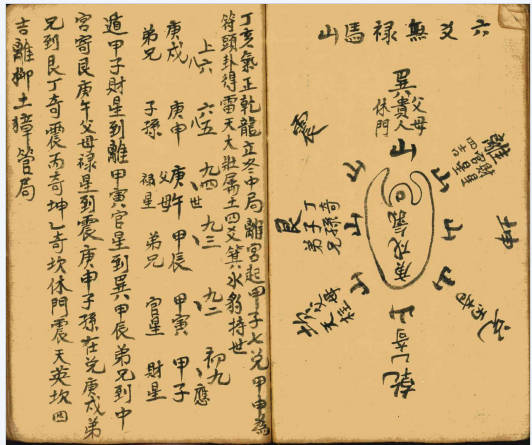 六爻無祿馬山
巽
父母
貴人
休門
山
離
財星
官星
四吉
坤
山
山
山
兌
乾
乙奇
山
坎
山
艮
丁奇
子孫
弟兄
山
震
山
庚戌氣
丁亥氣正乾龍立冬中局離宮起甲子七兌甲申為
符頭卦得雷天大壯屬土四爻箕水豹持世
上六 六五 九四世 九三 九二 初九應
庚戌 庚申 庚午 甲辰 甲寅 甲子
弟兄 子孫 父母祿星 弟兄 官星 財星
遁甲子財星到離甲寅官星到巽甲辰弟兄到中
宮寄艮庚午父母祿星到震庚申子孫在兌庚戌弟
兄到艮丁奇震丙奇坤乙奇坎休門震天英坎四
吉離柳土獐管局